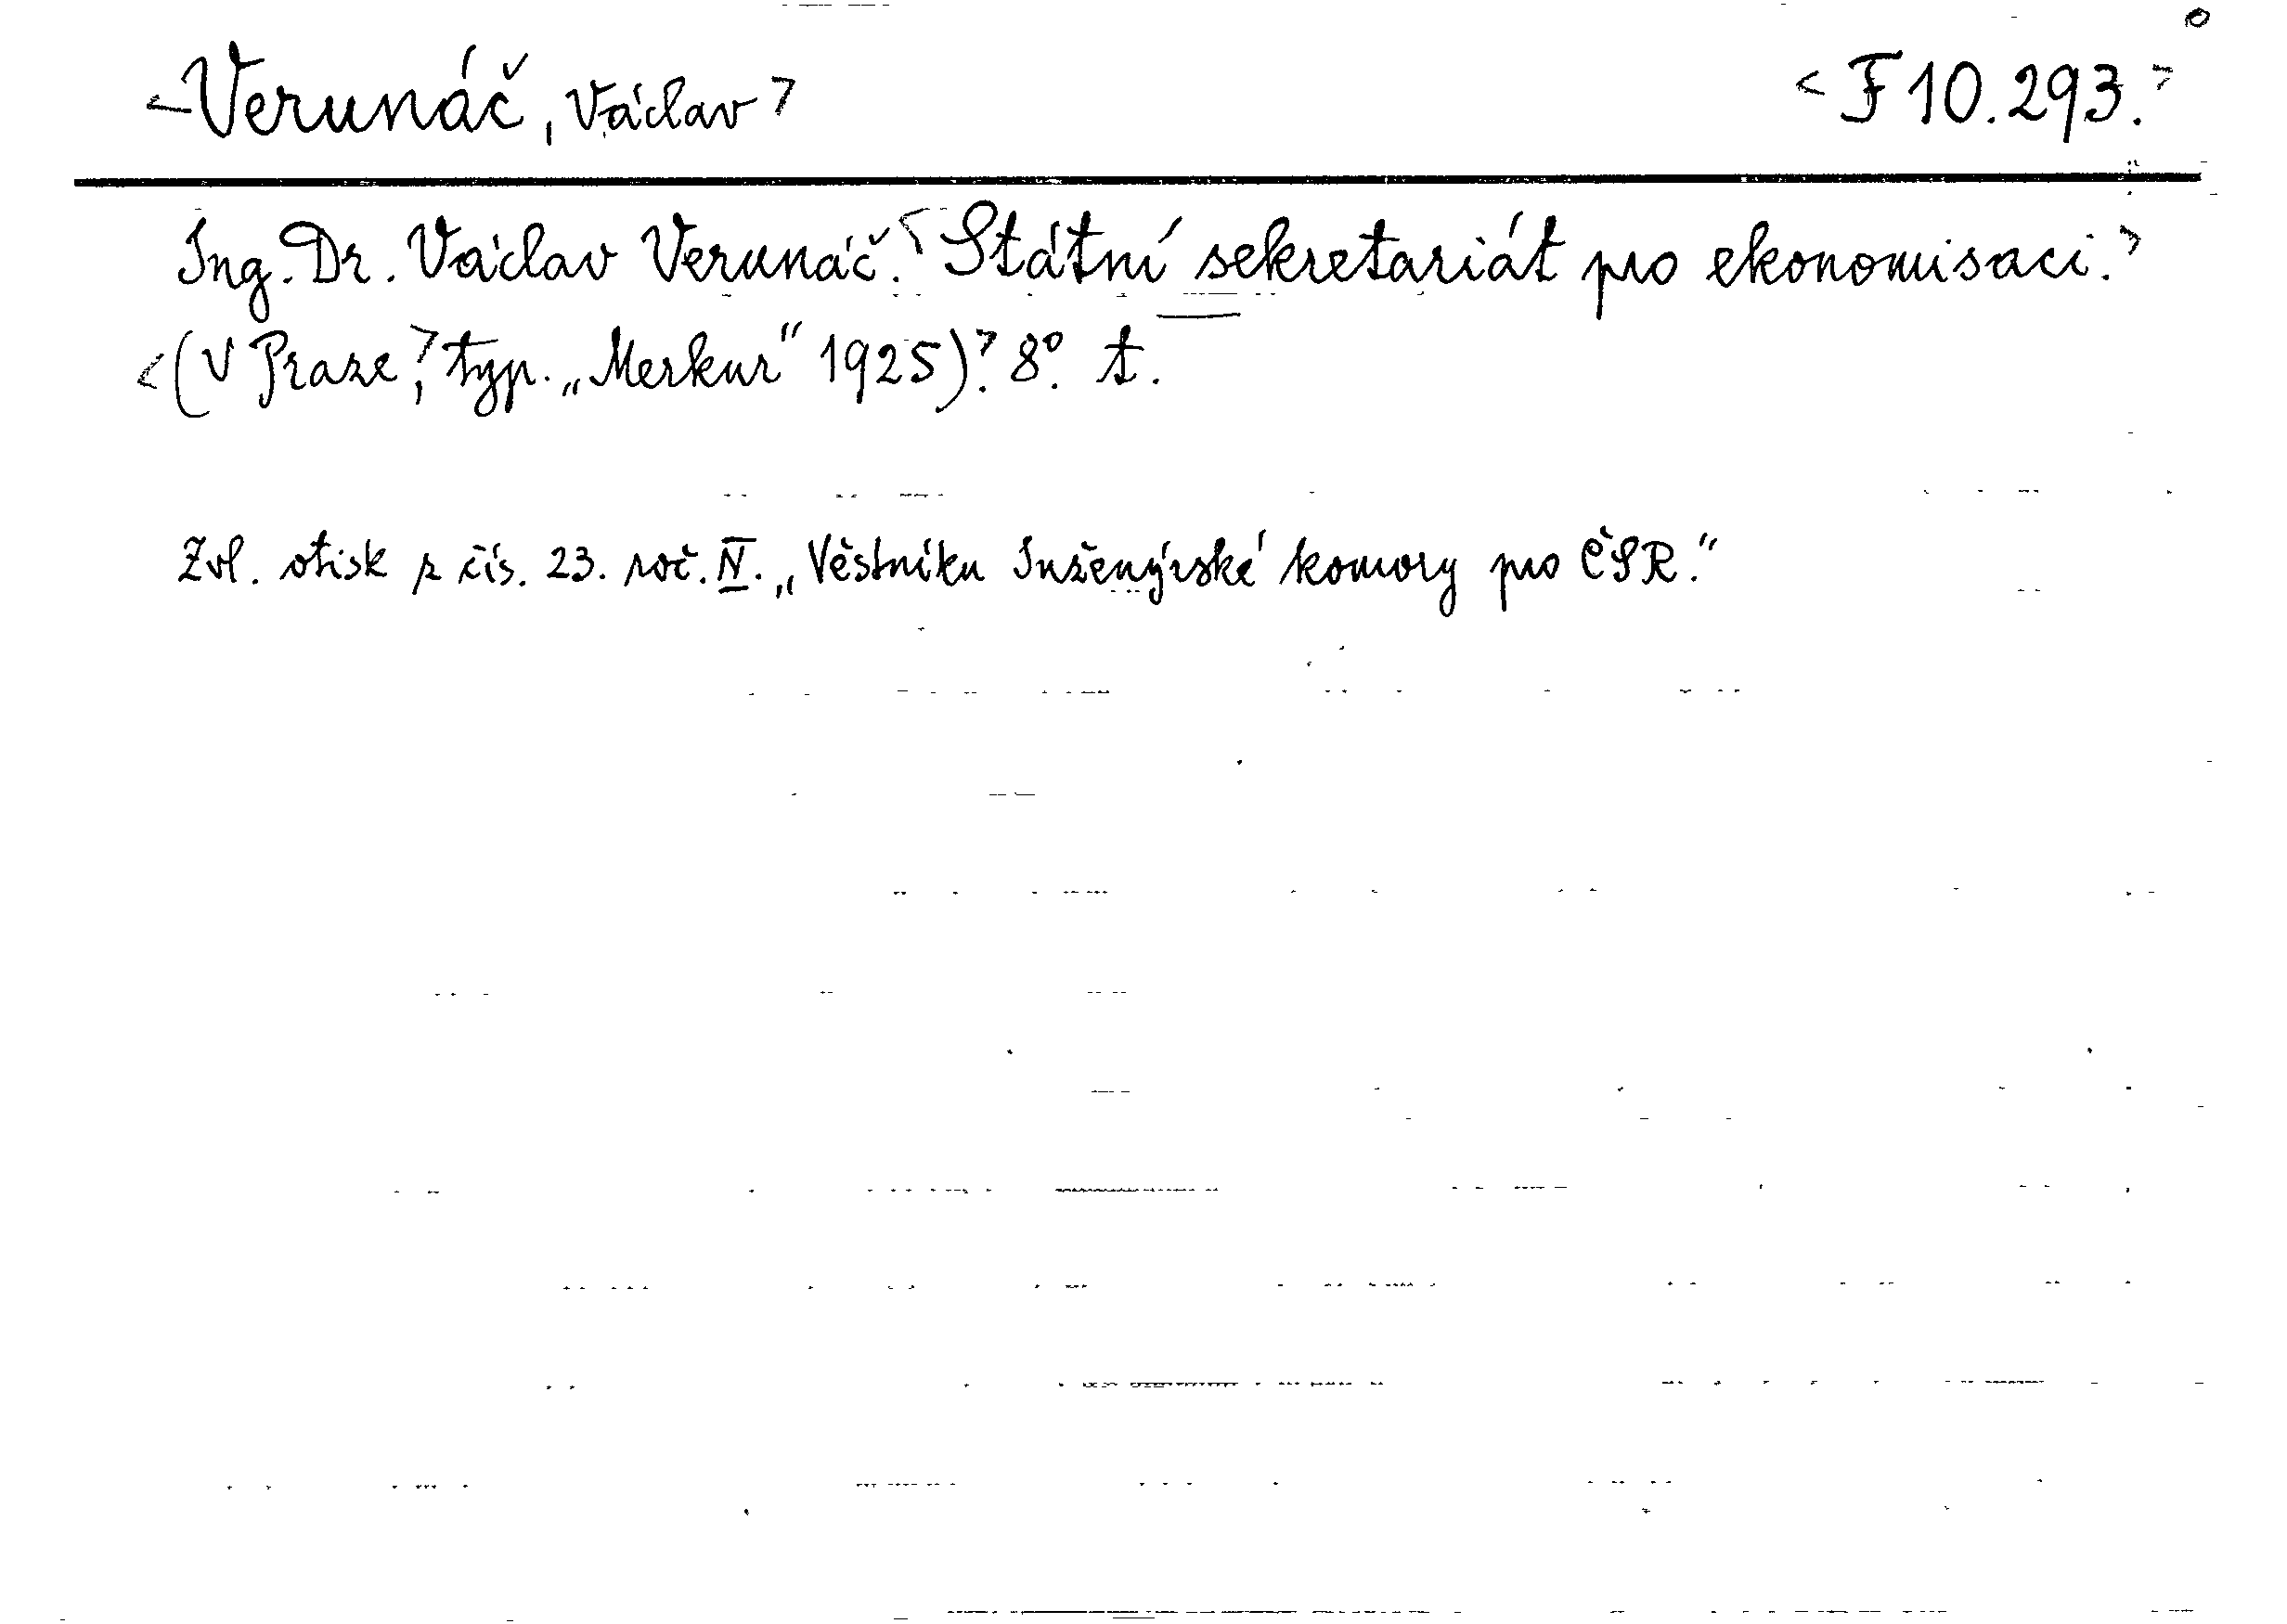 <Verunáč, Václav> <F 10.293.>
Ing. Dr. Václav Verunáč. <Státní sekretariát pro ekonomisaci.>
<(V Praze,> typ. „Merkur“ 1925).> 8°. t.
Zvl. otisk z čís. 23. roč. IV. „Věstníku Inženýrské komory pro ČSR.“